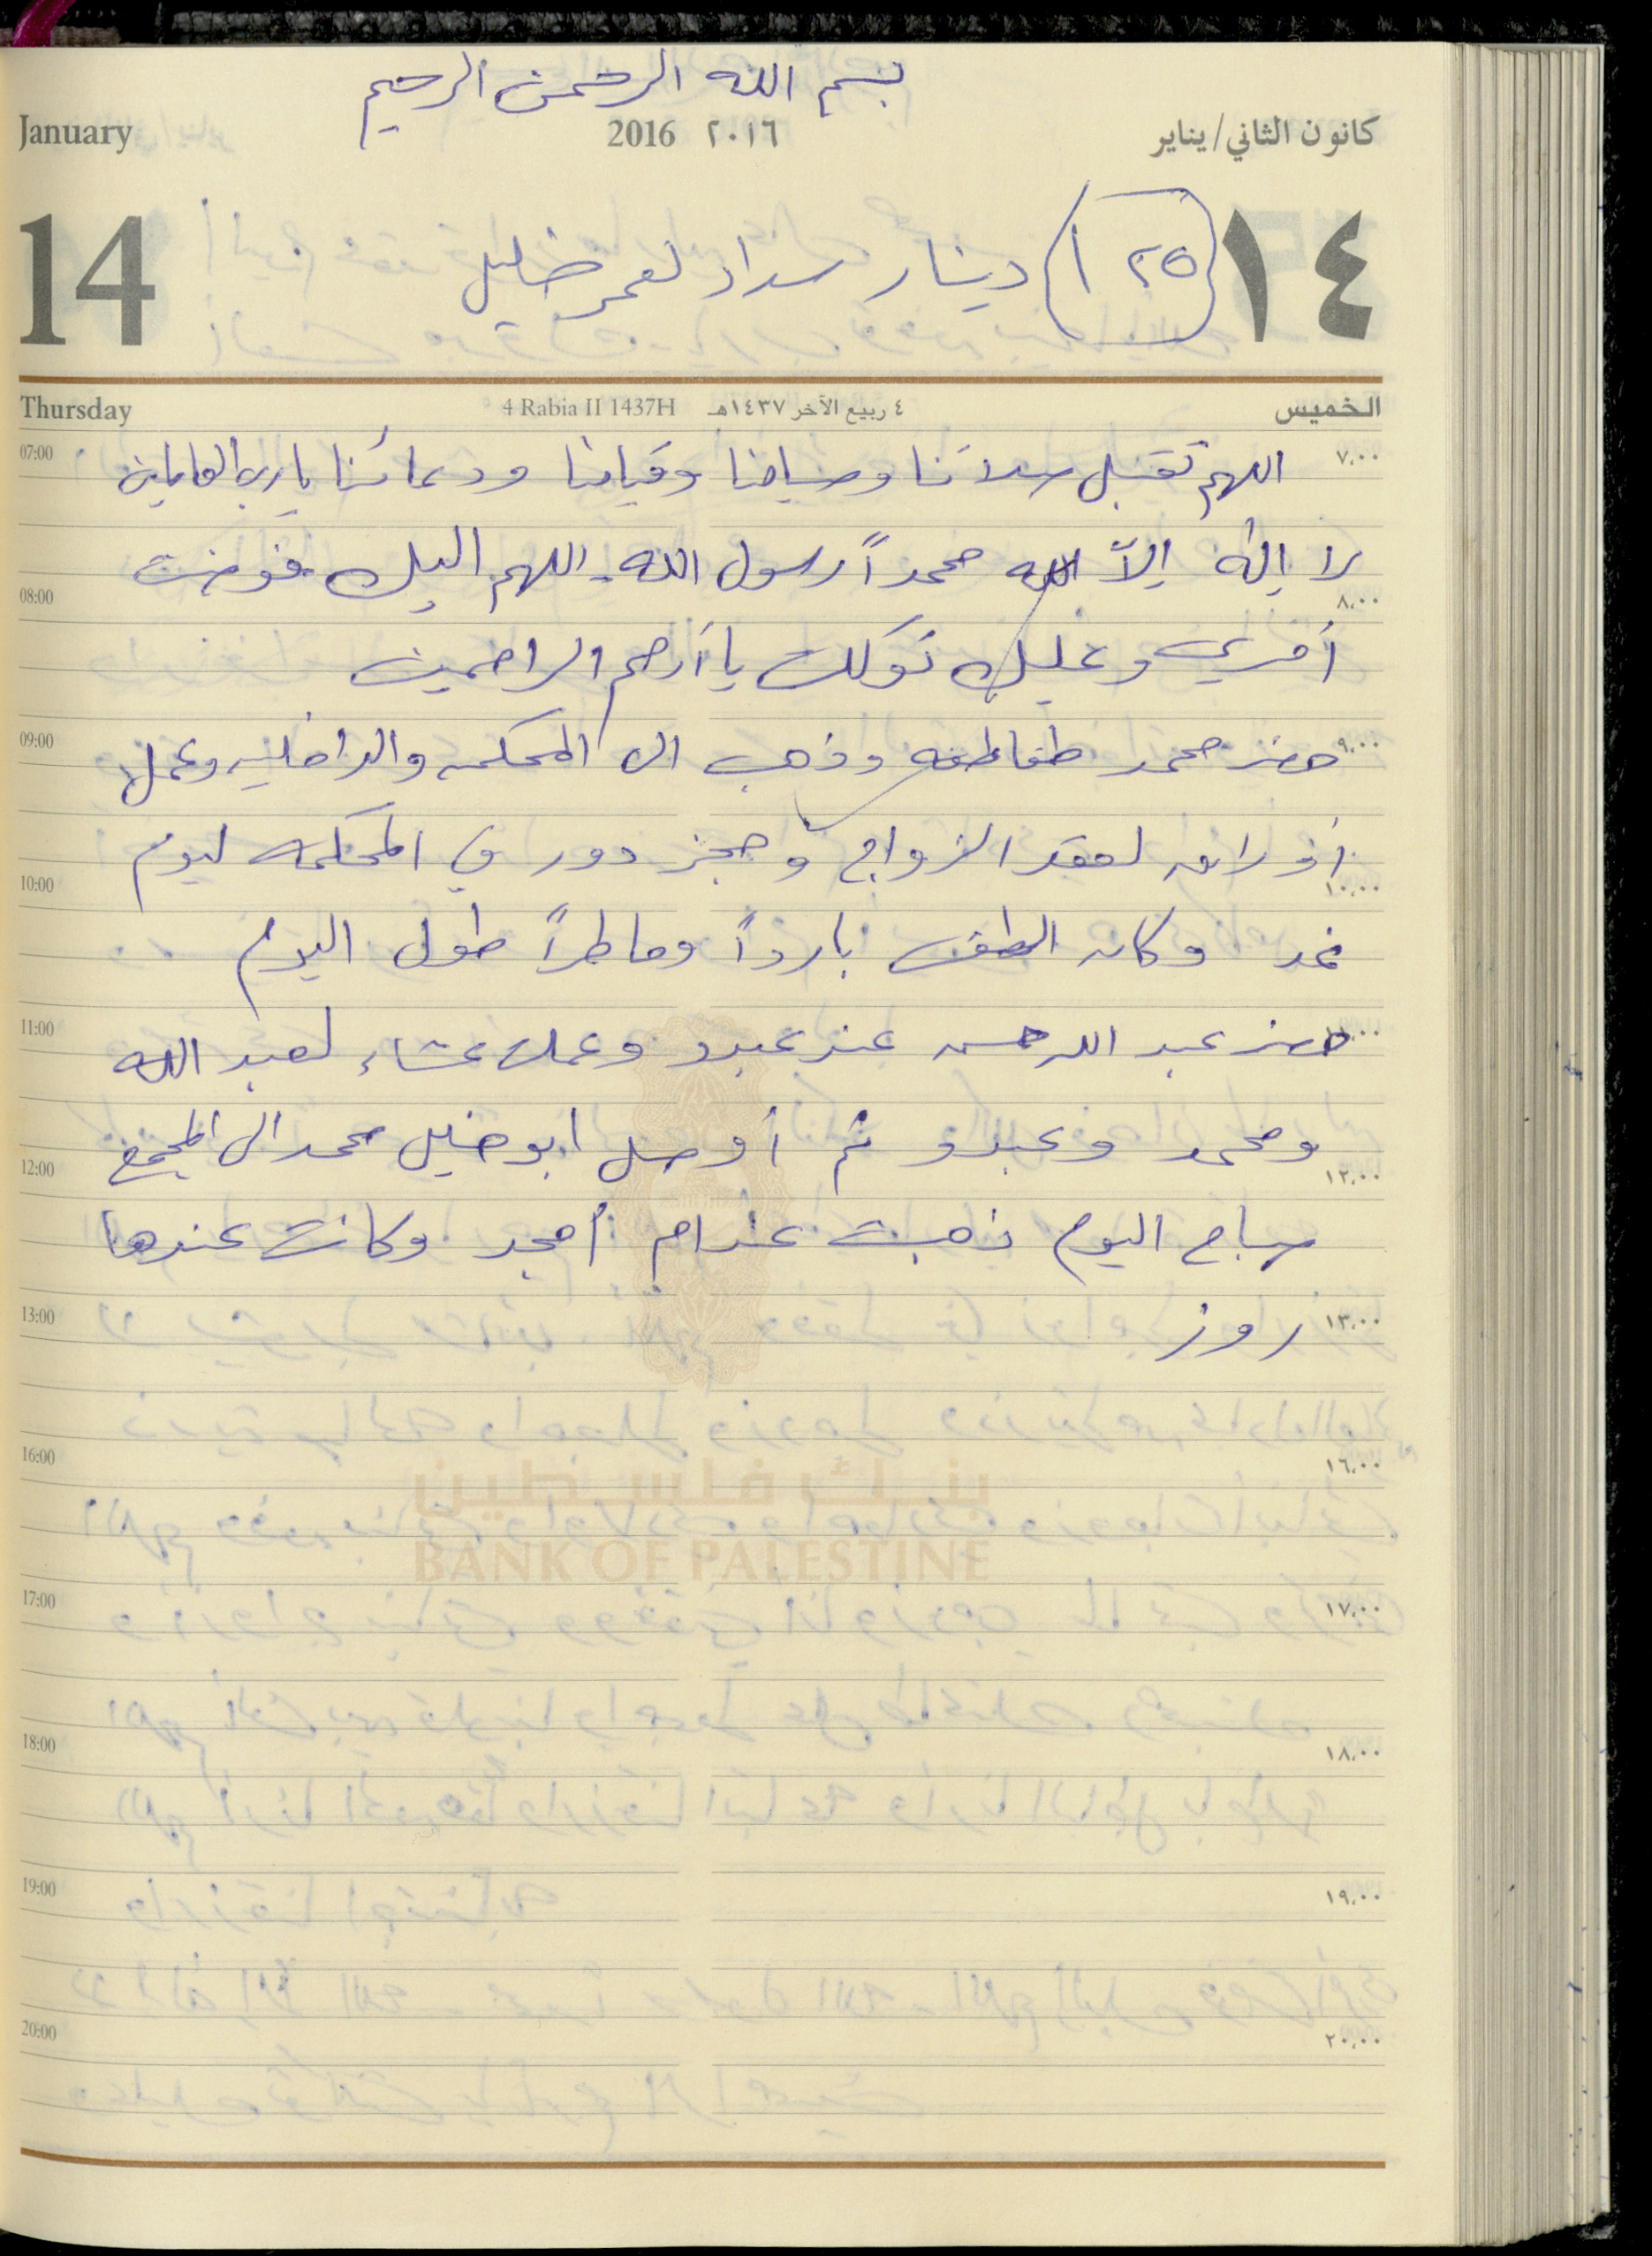 بسم الله الرحمن الرحيم
January 2016 ٢٠١٦ كانون الثاني/يناير
14 (١٢٥) دينار سداد لعمر خليل ١٤
Thursday 4 Rabia II 1437H ٤ ربيع الآخر ١٤٣٧هـ الخميس
07:00 اللهم تقبل صلاتنا وصيامنا وقيامنا ودعائنا يا رب العالمين ٧،٠٠
لا إله إلاّ الله محمداً رسول الله. اللهم اليك فوضت
08:00 ٨،٠٠
أمري وعليك توكلت يا أرحم الراحمين
09:00 حضر محمد طقاطقه وذهب الى المحكمه والداخليه وعمل ٩،٠٠
أوراقه لعقد الزواج وحجز دور في المحكمه ليوم
10:00 ١٠،٠٠
غد وكان الطقس بارداً وماطراً طول اليوم
11:00 حضر عبد الرحمن عند عبدو وعملت عشاء لعبد الله
ومحمد وعبدو ثم أوصل ابو خليل محمد الى المجمع
12:00 ١٢،٠٠
صباح اليوم ذهبت عند ام أمجد وكانت عندها
13:00 روز ١٣،٠٠
16:00 ١٦،٠٠
بنك فلسطين
BANK OF PALESTINE
17:00 ١٧،٠٠
18:00 ١٨،٠٠
19:00 ١٩،٠٠
20:00 ٢٠،٠٠